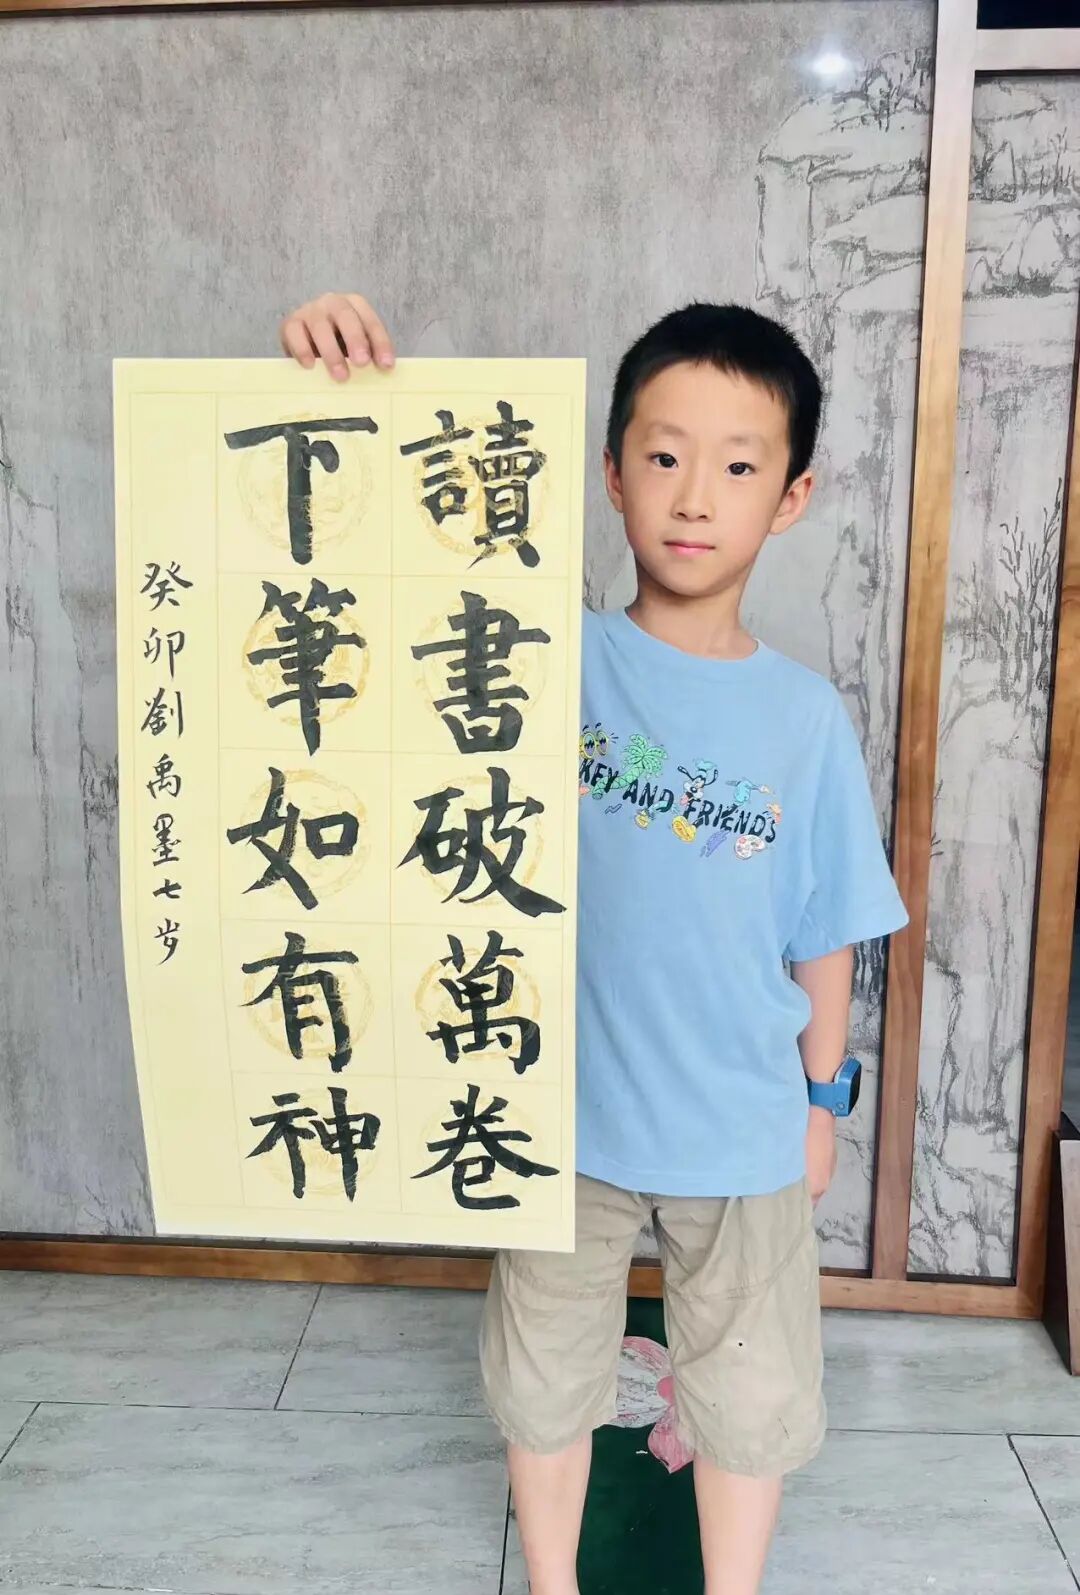 讀書破萬卷
下筆如有神
癸卯劉禹墨七岁
KEY AND FRIENDS